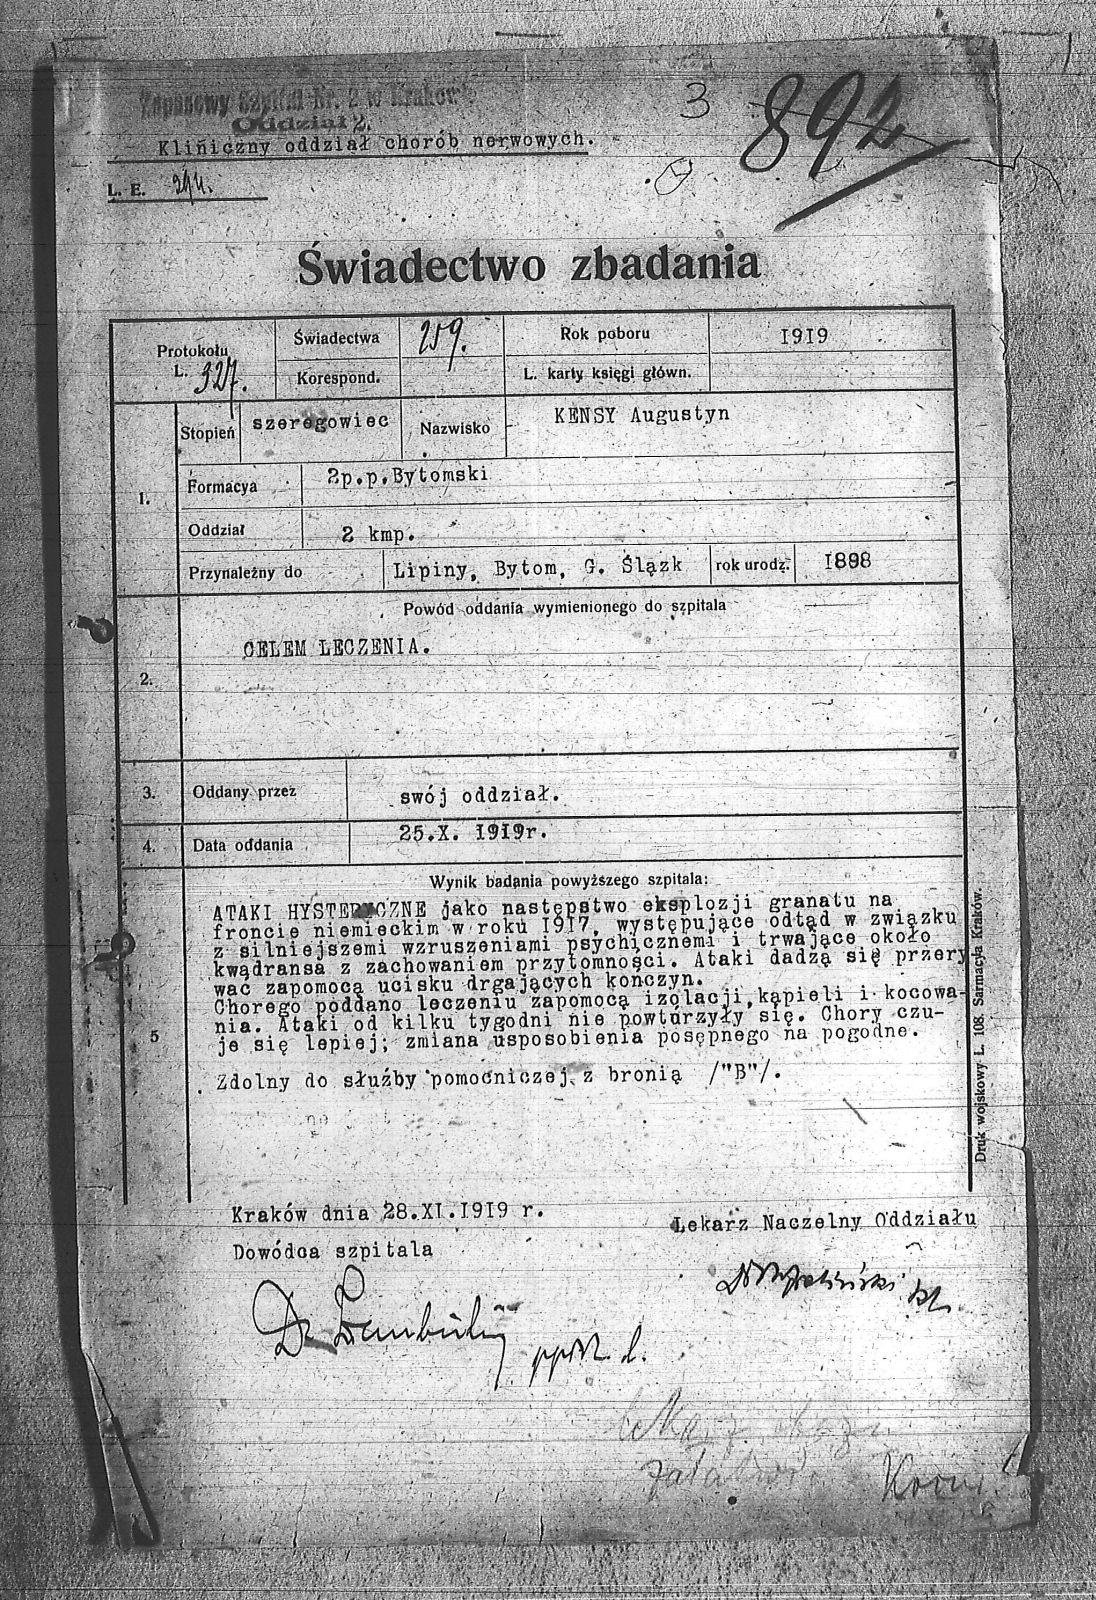 Zapasowy Szpital Nr. 2 w Krakowie
Oddział 2.
Kliniczny oddział chorób nerwowych.
L. E.
3
892
Świadectwo zbadania
Protokołu L. 327.
Świadectwa 259.
Korespond.
Rok poboru 1919
L. karty księgi główn.
1.
Stopień szeregowiec
Nazwisko KENSY Augustyn
Formacya 2p.p.Bytomski
Oddział 2 kmp.
Przynależny do Lipiny, Bytom, G. Śląsk rok urodz. 1898
2.
Powód oddania wymienionego do szpitala
CELEM LECZENIA.
3. Oddany przez swój oddział.
4. Data oddania 25.X. 1919r.
5
Wynik badania powyższego szpitala:
ATAKI HYSTERYCZNE jako następstwo eksplozji granatu na
froncie niemieckim w roku 1917, występujące odtąd w związku
z silniejszemi wzruszeniami psychicznemi i trwające około
kwądransa z zachowaniem przytomności. Ataki dadzą się przery
wać zapomocą ucisku drgających kończyn.
Chorego poddano leczeniu zapomocą izolacji,kąpieli i kocowa-
nia. Ataki od kilku tygodni nie powtórzyły się. Chory czu-
je się lepiej; zmiana usposobienia posępnego na pogodne.
Zdolny do służby pomocniczej z bronią /"B"/.
Druk wojskowy L. 108. Sarmacya Kraków.
Kraków dnia 28.XI.1919 r.
Dowódca szpitala
Lekarz Naczelny Oddziału
Dr